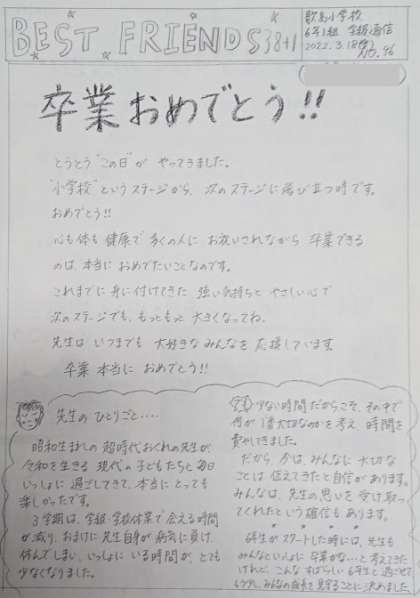 BEST FRIENDS 38+1
歌島小学校
6年1組 学級通信
2022.3.18(金)
NO.96
卒業おめでとう!!
とうとう“この日”が やってきました。
“小学校”というステージから、次のステージに飛び立つ時です。
おめでとう!!
心も体も健康で 多くの人に お祝いされながら 卒業できる
のは、本当に おめでたいことなのです。
これまでに身に付けてきた 強い気持ちと やさしい心で
次のステージでも、もっともっと 大きくなってね。
先生は いつまでも 大好きな みんなを 応援しています。
卒業 本当に おめでとう!!
先生の ひとりごと‥‥
昭和生まれの 超時代おくれの先生が、
令和を生きる 現代の子どもたちと毎日
いっしょに 過ごしてきて、本当に とっても
楽しかったです。
3学期は、学級・学校休業で 会える時間
が減り、おまけに 先生自身が 病気に負け、
休んでしまい、いっしょに いる時間が、とても
少なくなりました。
少ない時間だからこそ、その中で
何が1番大切なのかを考え 時間を
費やしてきました。
だから 今は、みんなに 大切な
ことは 伝えてきたと自信があります。
みんなは、先生の思いを 受け取っ
てくれたという確信もあります。
6年生がスタートした時には、先生も
みんなといっしょに 卒業かな…と 考えてきた
けれど、こんな すばらしい 6年生と 過ごせて
もう少し、みんなの成長を 見守ることに 決めました。